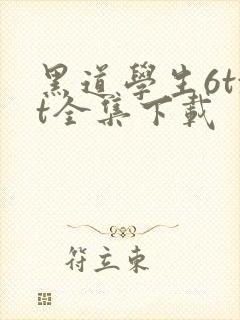 黑道學生6tx
t全集下載
符立東